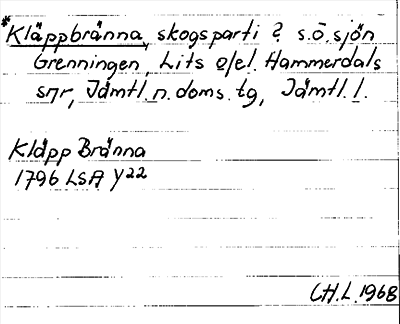 *Kläppbränna, skogsparti ? s.ö. sjön
Grenningen, Lits o/el. Hammerdals
snr, Jämtl. n. doms. tg, Jämtl. l.
Kläpp Bränna
1796 LSA Y22
CH.L. 1968